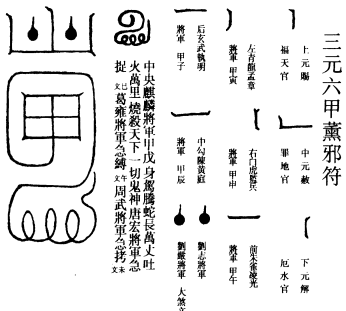 三元六甲薰邪符
上元賜
福天官
中元赦
罪地官
下元解
厄水官
左青龍孟章
將軍 甲寅
右白虎監兵
將軍 甲申
前朱雀陵光
將軍 甲午
后玄武執明
將軍 甲子
中勾陳黃庭
將軍 甲辰
劉志將軍
劉嚴將軍 大煞文
中央麒麟將軍甲戊身駕騰蛇長萬丈吐
火萬里燒殺天下一切鬼神唐宏將軍急
捉 巳文 葛雍將軍急縛 午文 周武將軍急拷 未文